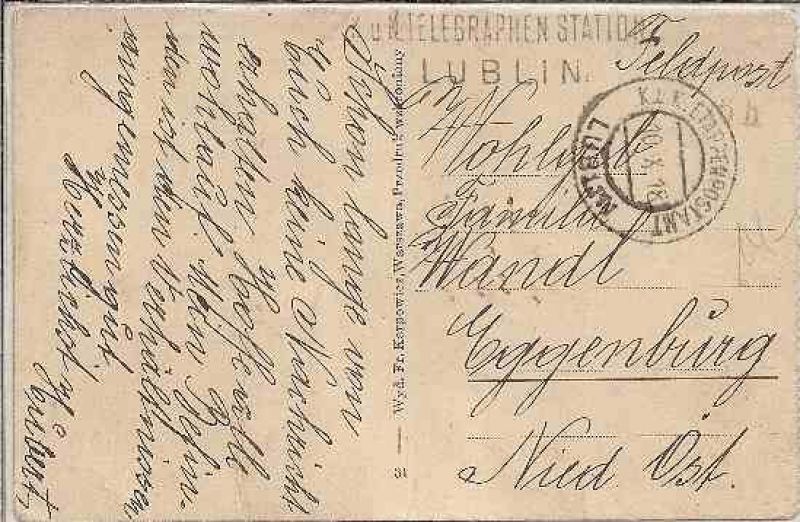 K. u. K. TELEGRAPHEN STATION
LUBLIN.
Feldpost
K. u. K. ETAPPENPOSTAMT
LUBLIN
Wohlgeb
Familie
Wandl
Eggenburg
Nied Öst.
Wyd. Fr. Karpowicz, Warszawa, Przedruk wzbroniony
31
Schon lange von
Euch keine Nachricht
erhalten. Hoffe alle
wohlauf. Mein Befin-
den ist den Verhältnissen
angemessen gut.
Herzlichst